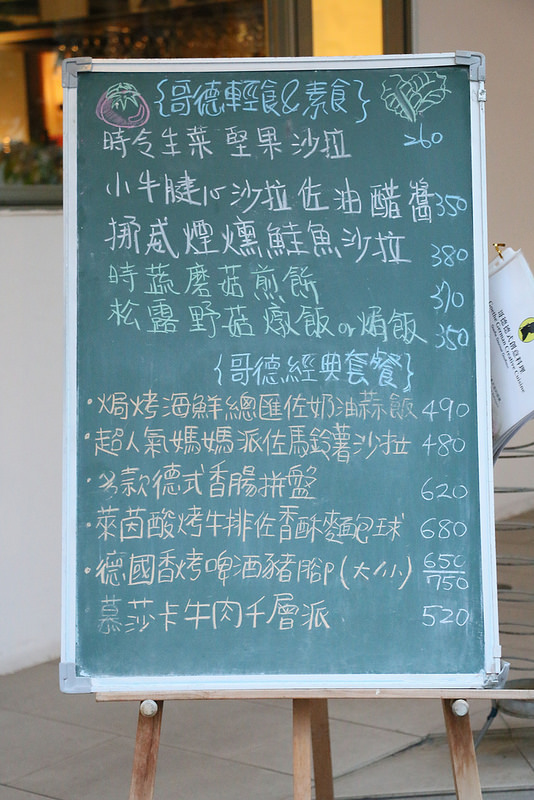 {哥德輕食&素食}
時令生菜堅果沙拉 260
小牛腱心沙拉佐油醋醬 350
挪威煙燻鮭魚沙拉 380
時蔬磨菇煎餅 310
松露野菇燉飯or焗飯 350
{哥德經典套餐}
·焗烤海鮮總匯佐奶油蒜飯 490
·超人氣媽媽派佐馬鈴薯沙拉 480
·多款德式香腸拼盤 620
·萊茵酸烤牛排佐香酥麵包球 680
·德國香烤啤酒豬腳(大/小) 650/750
慕莎卡牛肉千層派 520
哥德德式創意料理
Goethe German Creative Cuisine